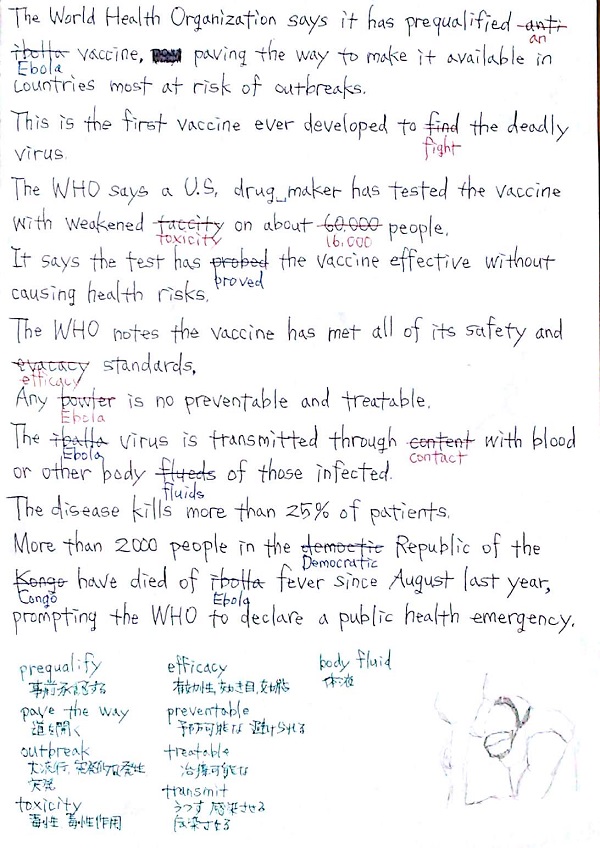 The World Health Organization says it has prequalified anti-
an
ibolla vaccine, paving the way to make it available in
Ebola
countries most at risk of outbreaks.
This is the first vaccine ever developed to find the deadly
fight
virus.
The WHO says a U.S. drug maker has tested the vaccine
with weakened taccity on about 60.000 people.
toxicity 16.000
It says the test has probed the vaccine effective without
proved
causing health risks.
The WHO notes the vaccine has met all of its safety and
evacacy standards.
efficacy
Any powter is no preventable and treatable.
Ebola
The iballa virus is transmitted through content with blood
Ebola contact
or other body flueds of those infected.
fluids
The disease kills more than 25% of patients.
More than 2000 people in the democtic Republic of the
Democratic
Kongo have died of ibolla fever since August last year,
Congo Ebola
prompting the WHO to declare a public health emergency.
prequalify efficacy body fluid
事前承認する 有効性,効き目,効能 体液
pave the way preventable
道を開く 予防可能な 避けられる
outbreak treatable
大流行, 突発的な発生 治療可能な
突発 transmit
toxicity うつす 感染させる
毒性 毒性作用 伝染させる